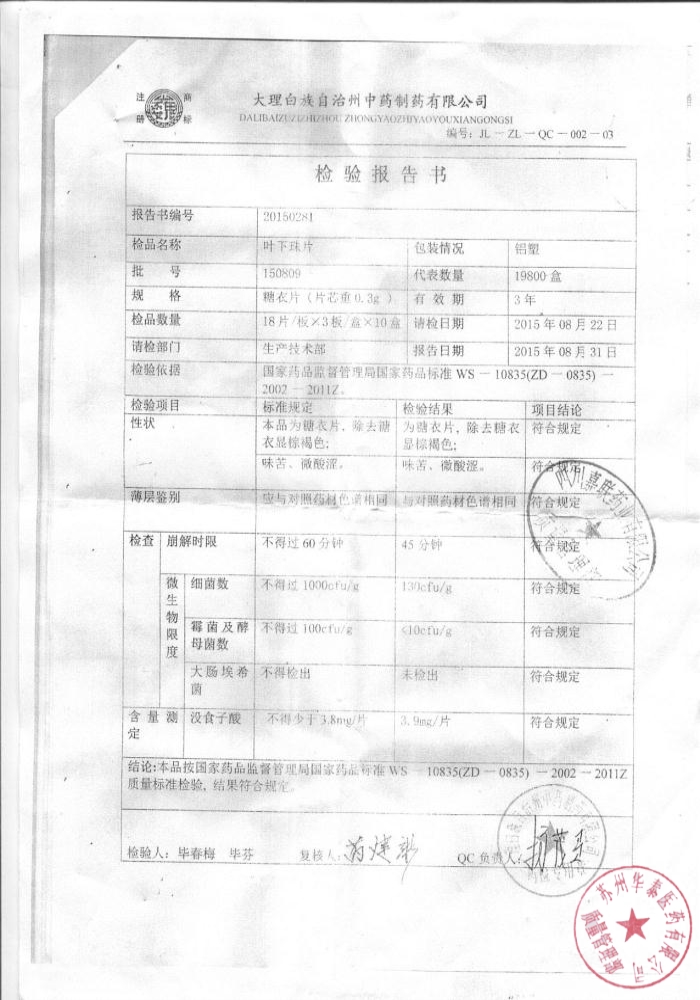 注册 商标
大理白族自治州中药制药有限公司
DALIBAIZUZIZHIZHOU ZHONGYAOZHIYAOYOUXIANGONGSI
编号：JL－ZL－QC－002－03
检验报告书
报告书编号 20150281
检品名称 叶下珠片 包装情况 铝塑
批 号 150809 代表数量 19800 盒
规 格 糖衣片（片芯重0.3g ） 有 效 期 3 年
检品数量 18片/板×3板/盒×10盒 请检日期 2015 年 08 月 22 日
请检部门 生产技术部 报告日期 2015 年 08 月 31 日
检验依据 国家药品监督管理局国家药品标准 WS－10835(ZD－0835)－
2002－2011Z。
检验项目 标准规定 检验结果 项目结论
性状 本品为糖衣片，除去糖 为糖衣片，除去糖衣 符合规定
衣显棕褐色; 显棕褐色;
味苦、微酸涩。 味苦、微酸涩。 符合规定
薄层鉴别 应与对照药材色谱相同 与对照药材色谱相同 符合规定
检查 崩解时限 不得过 60 分钟 45 分钟 符合规定
微生物限度 细菌数 不得过 1000cfu/g 130cfu/g 符合规定
霉菌及酵 不得过 100cfu/g <10cfu/g 符合规定
母菌数
大肠埃希 不得检出 未检出 符合规定
菌
含 量 测 没食子酸 不得少于 3.8mg/片 3.9mg/片 符合规定
定
结论:本品按国家药品监督管理局国家药品标准 WS－10835(ZD－0835)－2002－2011Z
质量标准检验, 结果符合规定.
检验人：毕春梅 毕芬 复核人: QC 负责人:
苏州华泰医药有限公司
质量管理部